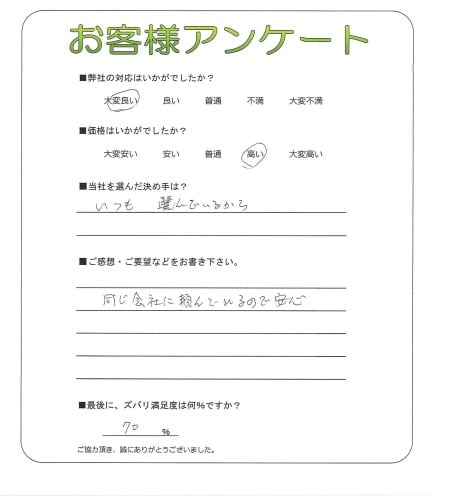 お客様アンケート
■弊社の対応はいかがでしたか？
大変良い 良い 普通 不満 大変不満
■価格はいかがでしたか？
大変安い 安い 普通 高い 大変高い
■当社を選んだ決め手は？
いつも 選んでいるから
■ご感想・ご要望などをお書き下さい。
同じ会社に頼んでいるので安心
■最後に、ズバリ満足度は何％ですか？
70 ％
ご協力頂き、誠にありがとうございました。